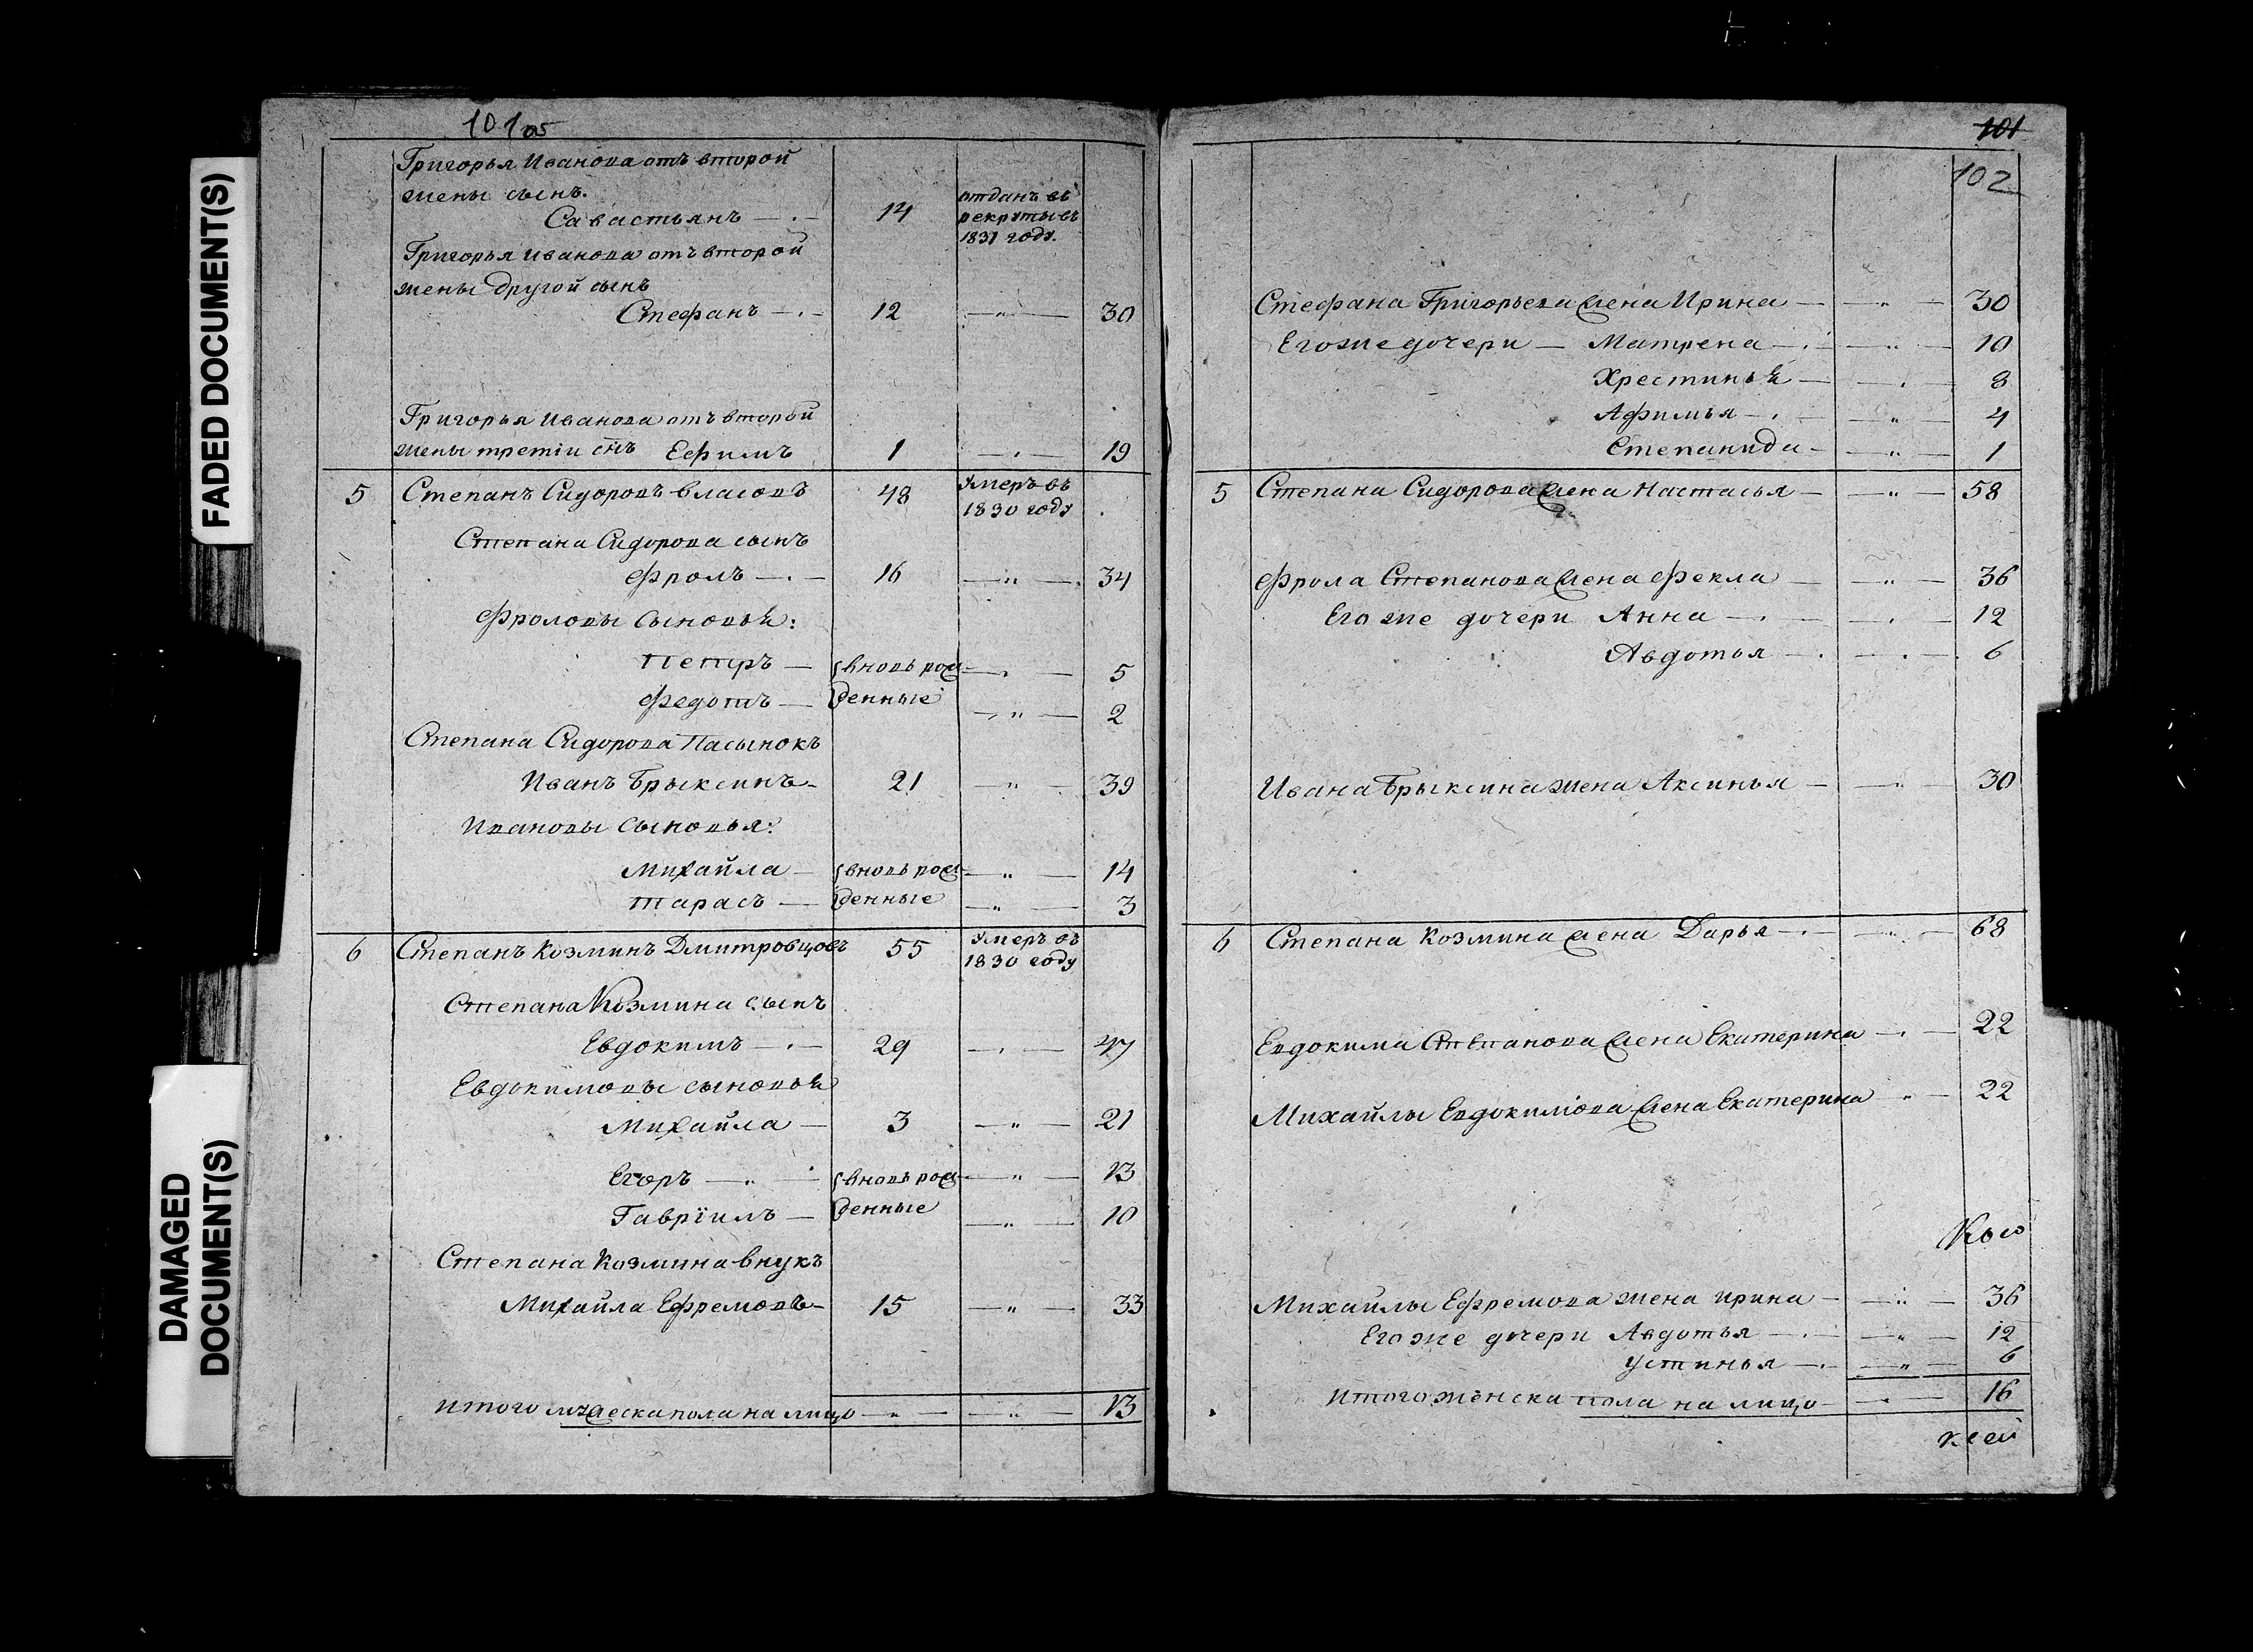 FADED DOCUMENT(S)
DAMAGED
DOCUMENT(S)
101 об
Григорья Иванова отъ второй
жены сынъ.
Савастьянъ — 14 отданъ въ
рекруты въ
1831 году.
Григорья Иванова отъ второй
жены другой сынъ
Стефанъ — 12 — " — 30
Григорья Иванова отъ второй
жены третiи снъ Ефимъ 1 — " — 19
5 Степанъ Сидоровъ Власовъ 48 умеръ въ
1830 году
Степана Сидорова сынъ
Фролъ — 16 — " — 34
Фроловы сыновья:
Петръ — вновь рож — " — 5
Федотъ — денные — " — 2
Степана Сидорова Пасынокъ
Иванъ Брыксинъ — 21 — " — 39
Ивановы сыновья:
Михайла — вновь рож — " — 14
Тарасъ — денные — " — 3
6 Степанъ Козминъ Дмитровцовъ 55 умеръ въ
1830 году
Степана Козмина сынъ
Евдокимъ — 29 — " — 47
Евдокимовы сыновья
Михайла — 3 — " — 21
Егоръ — " — вновь рож — " — 13
Гаврiилъ — денные — " — 10
Степана Козмина внукъ
Михайла Ефремовъ — 15 — " — 33
итого мужеска пола на лицо — " — — " — 13
101
102
Стефана Григорьева жена Ирина — — " — 30
Егоже дочери — Матрена — — " — 10
Хрестинья — — " — 8
Афимья — — " — 4
Степанида — — " — 1
5 Степана Сидорова жена Настасья — — " — 58
Фрола Степанова жена Фекла — — " — 36
Его же дочери Анна — — " — 12
Авдотья — — " — 6
Ивана Брыксина жена Аксинья — — " — 30
6 Степана Козмина жена Дарья — — " — 68
Евдокима Степанова жена Екатерина — 22
Михайлы Евдокимова жена Екатерина " — 22
Михайлы Ефремова жена Ирина — — " — 36
Его же дочери Авдотья — — " — 12
Устинья — — " — 6
итого женска пола на лицо — — " — 16